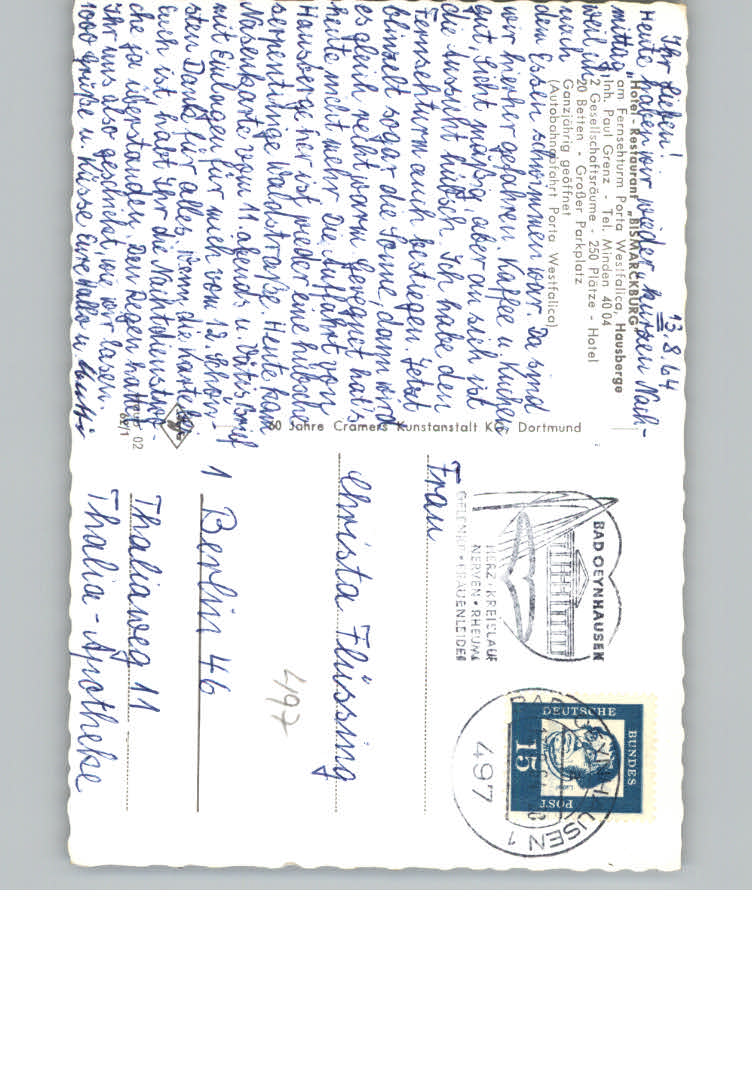 13.8.64
Ihr Lieben!
Heute haben wir wieder kurzen Nach-
mittag,
weil ich
nach
dem Essen schwimmen war. Da sind
wir hierher gefahren. Kaffee u. Kuchen
gut, Licht mäßig, aber aus sich ist
die Aussicht hübsch. Ich habe den
Fernsehturm auch bestiegen. Jetzt
strahlt sogar die Sonne, dann wird
es gleich selbst warm. Geregnet hat's
heute nicht mehr. Die Auffahrt von
Hausberge her ist wieder eine hübsche
serpentinige Waldstraße. Heute kam
Nasenkarte vom 11. abends u. Vatis Brief
mit Einlagen für mich vom 12. Schön-
sten Dank für alles. Wenn die Karte bei
Euch ist, habt Ihr die Nachtdienstwo-
che ja überstanden. Den Regen hattet
Ihr uns also geschickt, wie wir lasen.
1000 Grüße u. Küsse Eure
Hotel - Restaurant „BISMARCKBURG"
am Fernsehturm Porta Westfalica, Hausberge
Inh. Paul Grenz - Tel. Minden 40 04
2 Gesellschaftsräume - 250 Plätze - Hotel
20 Betten - Großer Parkplatz
Ganzjährig geöffnet
(Autobahnabfahrt Porta Westfalica)
60 Jahre Cramers Kunstanstalt KG, Dortmund
02
62/1
BAD OEYNHAUSEN
HERZ · KREISLAUF
NERVEN · RHEUMA
GELENKE · FRAUENLEIDEN
BAD OEYNHAUSEN 1
497
DEUTSCHE
BUNDES
POST
15
Frau
Christa Flüssing
497
1 Berlin 46
Thaliaweg 11
Thalia-Apotheke